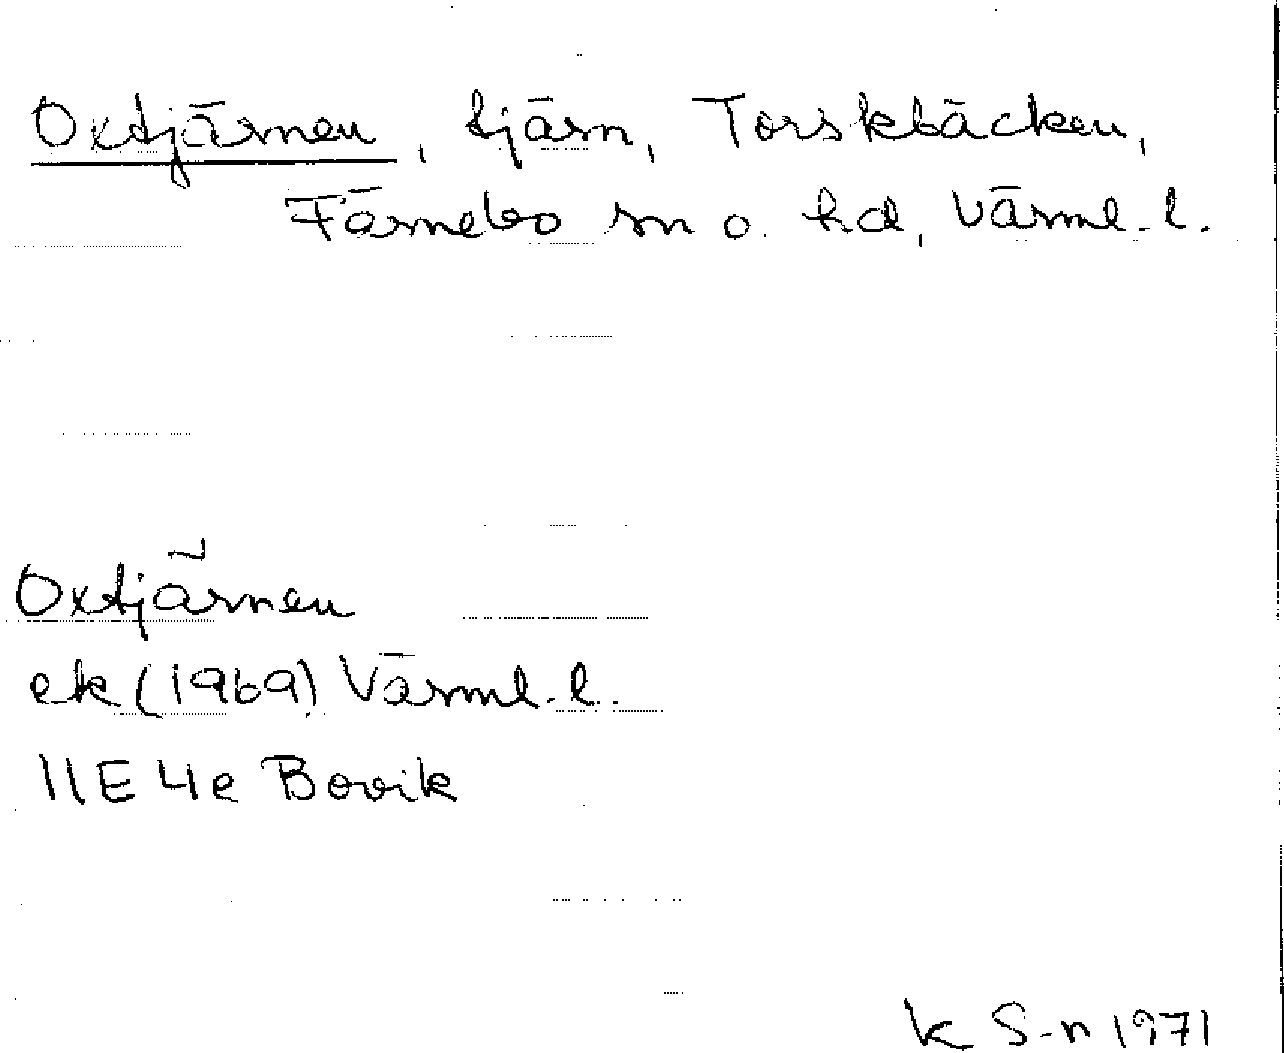 Oxtjärnen, tjärn, Torskbäcken,
Färnebo sn o. hd, Värml. l.
Oxtjärnen
ek (1969) Värml. l.
11E 4e Bovik
K S-n 1971